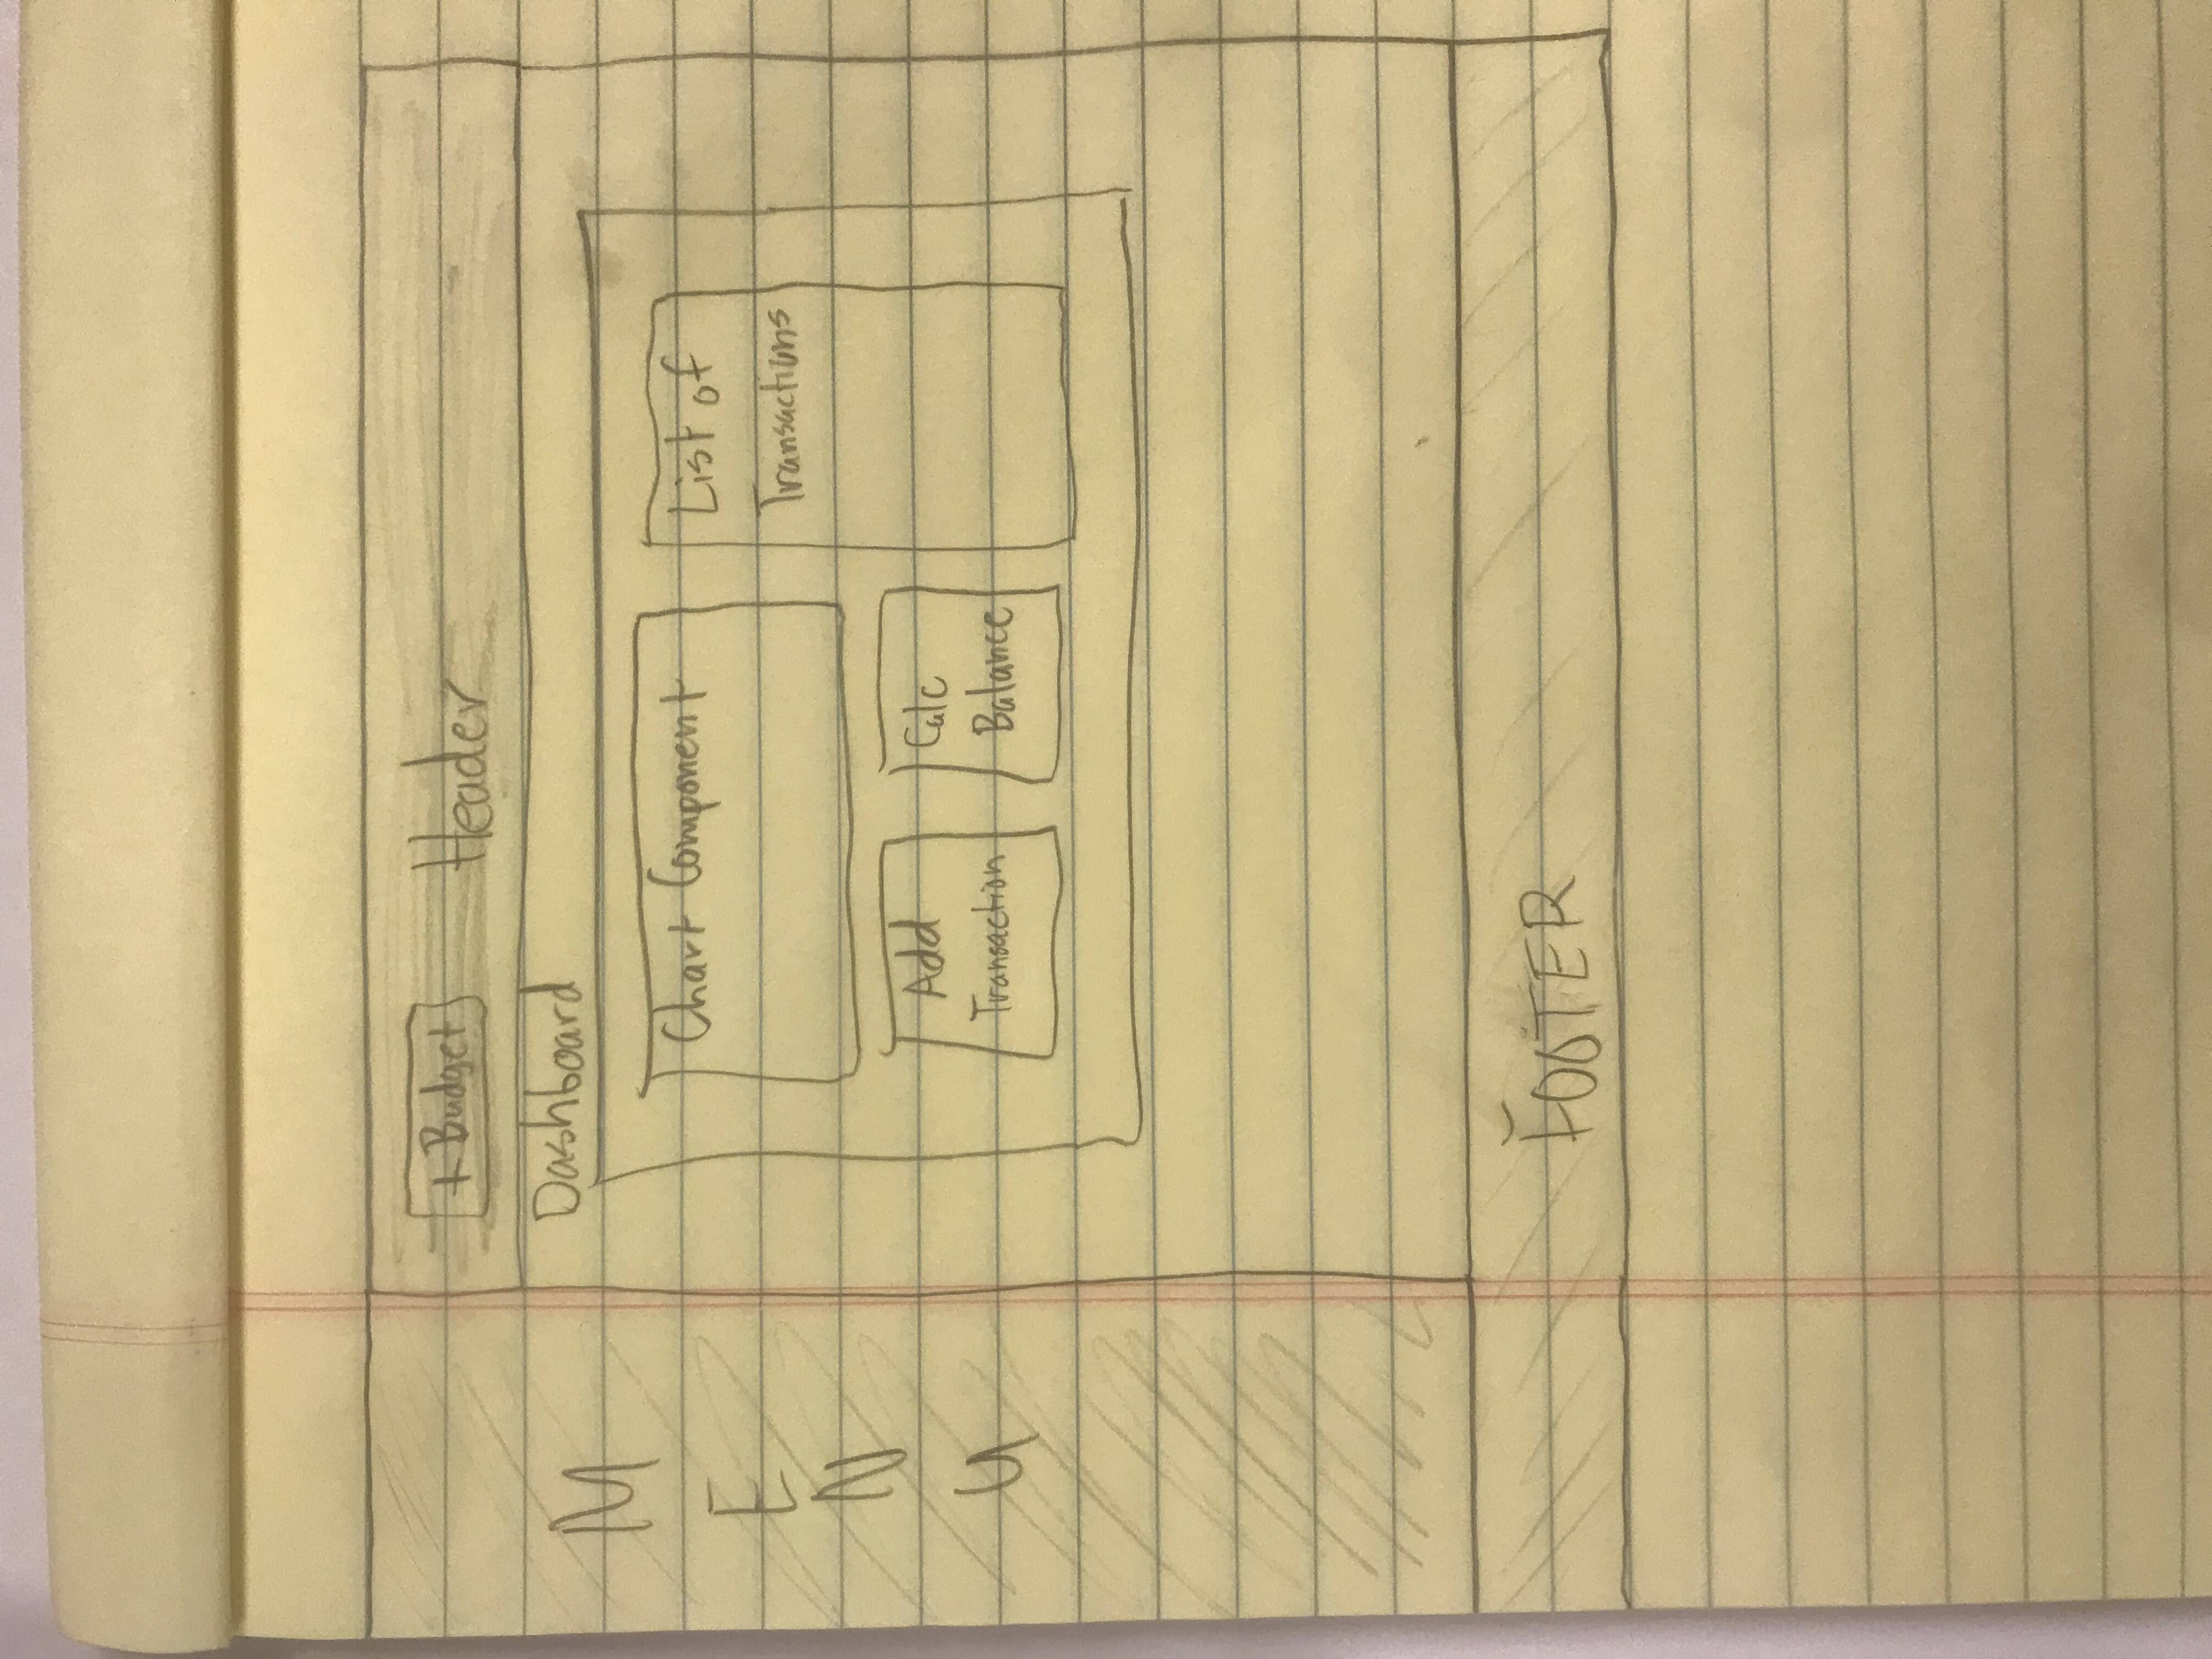 + Budget
Header
Dashboard
M
E
N
U
Chart Component
List of
Transactions
Add
Transaction
Calc
Balance
FOOTER